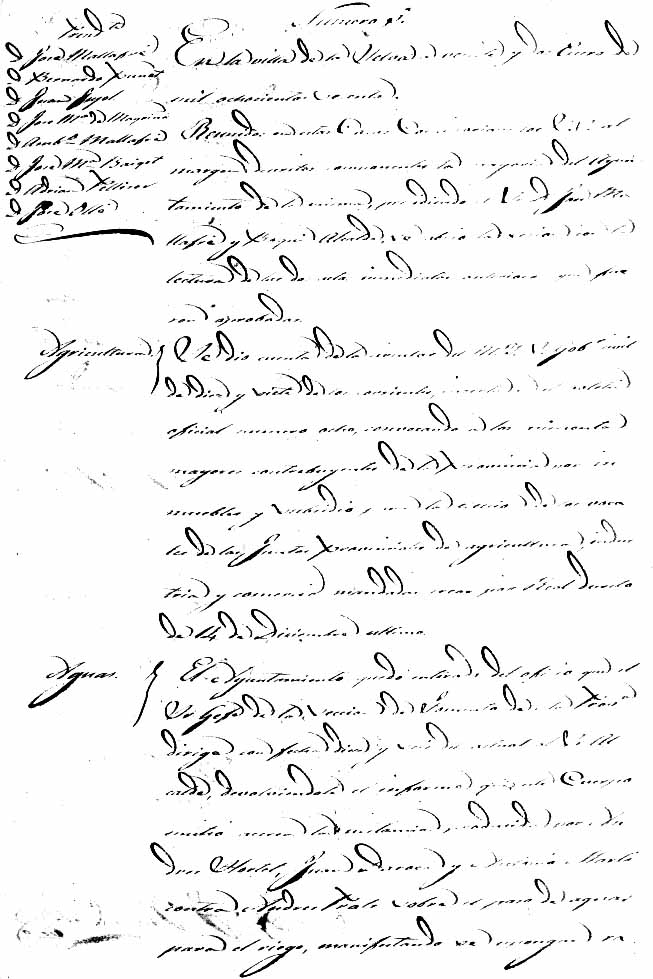 Numero 5º.
Presid.te
D. José Mallafré
D. Bernardo
D. Juan Pujol
D. José Mª de Magriñá
D. Amb.º Mallafré
D. José Mª Baiget
D. Adrian
D. José Ollé
En la villa de la Selva a veinte y dos Enero de
mil ochocientos sesenta.
Reunidos en estas Casas Consistoriales los SS. al
margen descritos componentes la mayoria del Ayun
tamiento de la misma, presididos del S. D. José Ma
llafré y Alcalde, se abrió la sesion con la
lectura de las de acta inmediatas anteriores que fue
ron aprobadas.
Agricultura. Se dio cuenta de la circular del M. I. S. Gob.or civil
de diez y siete de los corrientes, inserta en el boletin
oficial numero ocho, convocando a los cincuenta
mayores contribuyentes de la Provincia por in
muebles y subsidio, para la eleccion de los voca
les de las Juntas provinciales de agricultura, indus
tria y comercio mandadas crear por Real decreto
de 14 de Diciembre ultimo.
Aguas. El Ayuntamiento quedó enterado del oficio que el
Sr Gefe de la seccion de Fomento de la Prov.a
dirige con fecha diez y seis del actual al Sr. Al
calde, devolviendole el informe que este Cuerpo
emitió acerca la instancia producida por
Juan y Antonio Martí
contra Andres Prats sobre el paso de aguas
para el riego, manifestando se